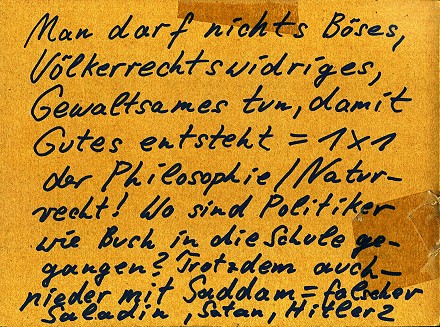 Man darf nichts Böses,
Völkerrechtswidriges,
Gewaltsames tun, damit
Gutes entsteht = 1x1
der Philosophie/Natur-
recht! Wo sind Politiker
wie Buch in die Schule ge-
gangen? Trotzdem auch-
nieder mit Saddam = falscher
Saladin, Satan, Hitler2